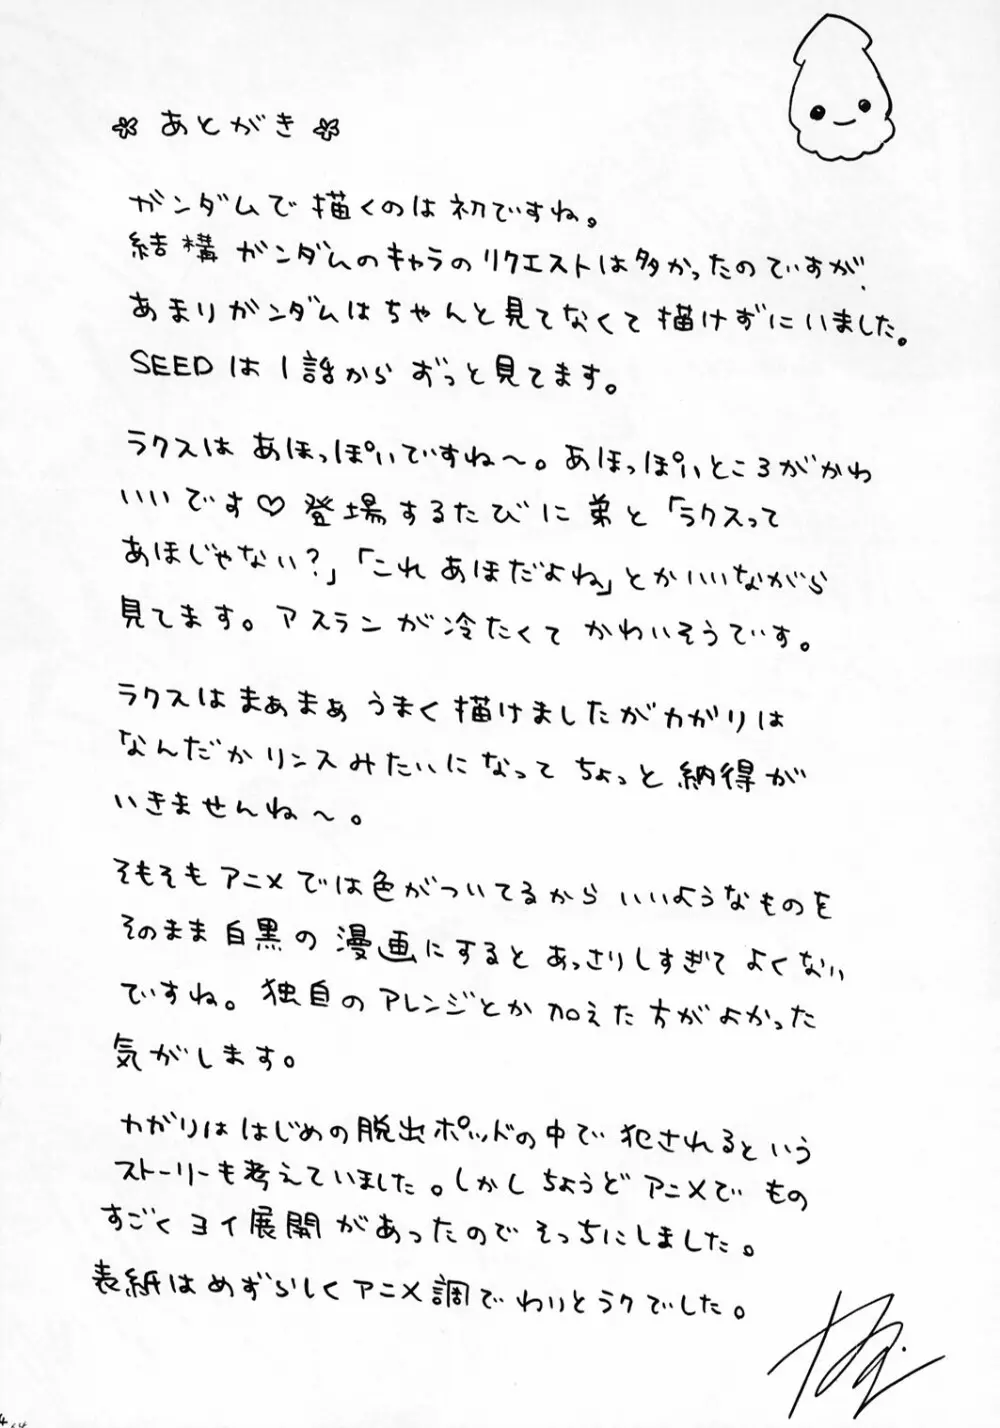 あとがき
ガンダムで描くのは初ですね。
結構ガンダムのキャラのリクエストは多かったのですが、
あまりガンダムはちゃんと見てなくて描けずにいました。
SEEDは1話からずっと見てます。
ラクスはあほっぽいですね〜。あほっぽいところがかわ
いいです♡登場するたびに弟と「ラクスって
あほじゃない?」「これあほだよね」とかいいながら
見てます。アスランが冷たくてかわいそうです。
ラクスはまぁまぁうまく描けましたがカガリは
なんだかリンスみたいになってちょっと納得が
いきませんね〜。
そもそもアニメでは色がついてるからいいようなものを
そのまま白黒の漫画にするとあっさりしすぎてよくない
ですね。独自のアレンジとか加えた方がよかった
気がします。
カガリははじめの脱出ポッドの中で犯されるという
ストーリーも考えていました。しかしちょうどアニメでもの
すごくヨイ展開があったのでそっちにしました。
表紙はめずらしくアニメ調でわりとラクでした。